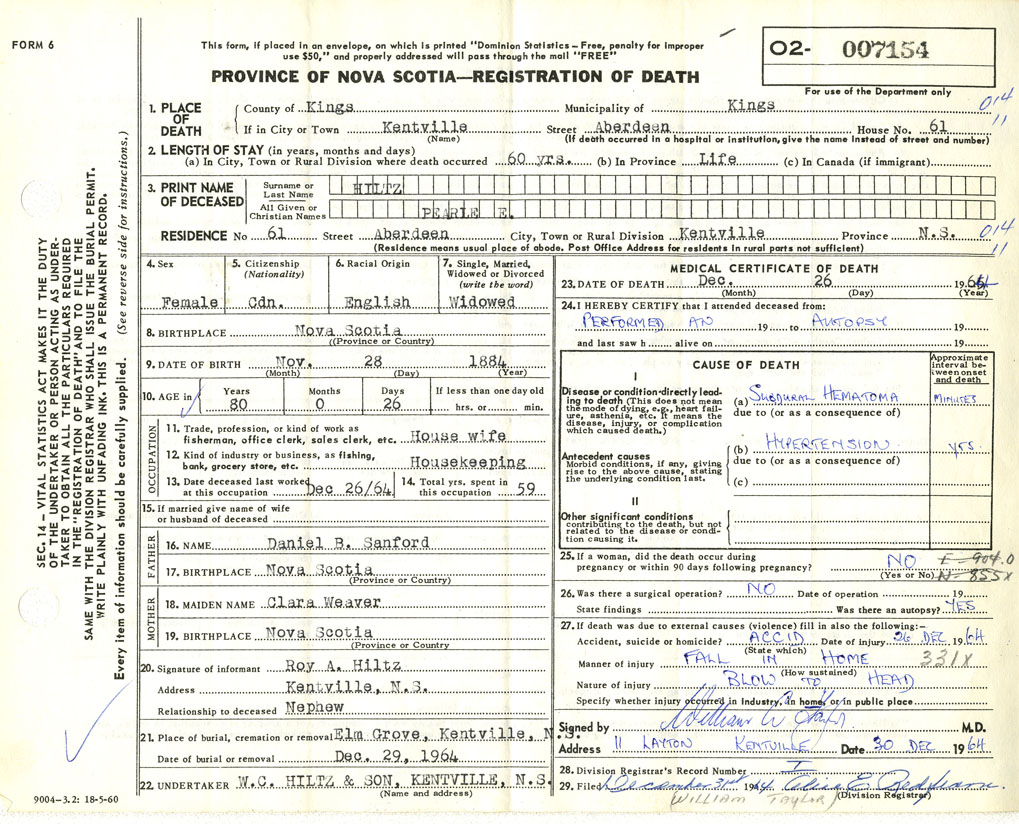 FORM 6
This form, if placed in an envelope, on which is printed "Dominion Statistics – Free, penalty for improper
use $50," and properly addressed will pass through the mail "FREE"
O2- 007154
PROVINCE OF NOVA SCOTIA—REGISTRATION OF DEATH
For use of the Department only
1. PLACE OF DEATH
County of Kings Municipality of Kings 014
If in City or Town Kentville Street Aberdeen House No. 61 11
(Name) (If death occurred in a hospital or institution, give the name instead of street and number)
2. LENGTH OF STAY (in years, months and days)
(a) In City, Town or Rural Division where death occurred 60 yrs. (b) In Province Life (c) In Canada (if immigrant)
3. PRINT NAME OF DECEASED
Surname or Last Name HILTZ
All Given or Christian Names PEARLE E.
RESIDENCE No 61 Street Aberdeen City, Town or Rural Division Kentville Province N.S. 014
(Residence means usual place of abode. Post Office Address for residents in rural parts not sufficient) 11
SEC. 14 – VITAL STATISTICS ACT MAKES IT THE DUTY
OF THE UNDERTAKER OR PERSON ACTING AS UNDER-
TAKER TO OBTAIN ALL THE PARTICULARS REQUIRED
IN THE "REGISTRATION OF DEATH" AND TO FILE THE
SAME WITH THE DIVISION REGISTRAR WHO SHALL ISSUE THE BURIAL PERMIT.
WRITE PLAINLY WITH UNFADING INK. THIS IS A PERMANENT RECORD.
Every item of information should be carefully supplied. (See reverse side for instructions.)
4. Sex
Female
5. Citizenship
(Nationality)
Cdn.
6. Racial Origin
English
7. Single, Married,
Widowed or Divorced
(write the word)
Widowed
8. BIRTHPLACE Nova Scotia
((Province or Country)
9. DATE OF BIRTH Nov. 28 1884
(Month) (Day) (Year)
10. AGE in
Years Months Days If less than one day old
80 0 26 hrs. or min.
OCCUPATION
11. Trade, profession, or kind of work as
fisherman, office clerk, sales clerk, etc. House wife
12. Kind of industry or business, as fishing,
bank, grocery store, etc. Housekeeping
13. Date deceased last worked
at this occupation Dec 26/64
14. Total yrs. spent in
this occupation 59
15. If married give name of wife
or husband of deceased
FATHER
16. NAME Daniel B. Sanford
17. BIRTHPLACE Nova Scotia
(Province or Country)
MOTHER
18. MAIDEN NAME Clara Weaver
19. BIRTHPLACE Nova Scotia
(Province or Country)
20. Signature of informant Roy A. Hiltz
Address Kentville, N.S.
Relationship to deceased Nephew
21. Place of burial, cremation or removal Elm Grove, Kentville, N.S.
Date of burial or removal Dec. 29, 1964
22. UNDERTAKER W.C. HILTZ & SON, KENTVILLE, N.S.
(Name and address)
9004–3.2: 18-5-60
MEDICAL CERTIFICATE OF DEATH
23. DATE OF DEATH Dec. 26 1964
(Month) (Day) (Year)
24. I HEREBY CERTIFY that I attended deceased from:
PERFORMED AN 19 to AUTOPSY 19
and last saw h alive on 19
CAUSE OF DEATH
Approximate
interval be-
tween onset
and death
I
Disease or condition directly lead-
ing to death (This does not mean
the mode of dying, e.g., heart fail-
ure, asthenia, etc. It means the
disease, injury, or complication
which caused death.)
(a) SUBDURAL HEMATOMA MINUTES
due to (or as a consequence of)
Antecedent causes
Morbid conditions, if any, giving
rise to the above cause, stating
the underlying condition last.
(b) HYPERTENSION YRS.
due to (or as a consequence of)
(c)
II
Other significant conditions
contributing to the death, but not
related to the disease or condi-
tion causing it.
25. If a woman, did the death occur during
pregnancy or within 90 days following pregnancy? NO E-904.0
(Yes or No) N-855X
26. Was there a surgical operation? NO Date of operation 19
State findings Was there an autopsy? YES
27. If death was due to external causes (violence) fill in also the following:–
Accident, suicide or homicide? ACCID Date of injury 26 DEC 1964
(State which)
Manner of injury FALL IN HOME 331X
(How sustained)
Nature of injury BLOW TO HEAD
Specify whether injury occurred in industry, in home, or in public place
Signed by William W. M.D.
Address 11 LAYTON KENTVILLE Date 30 DEC 1964
28. Division Registrar's Record Number I
29. Filed December 31st 1964
(Division Registrar)
WILLIAM TAYLOR